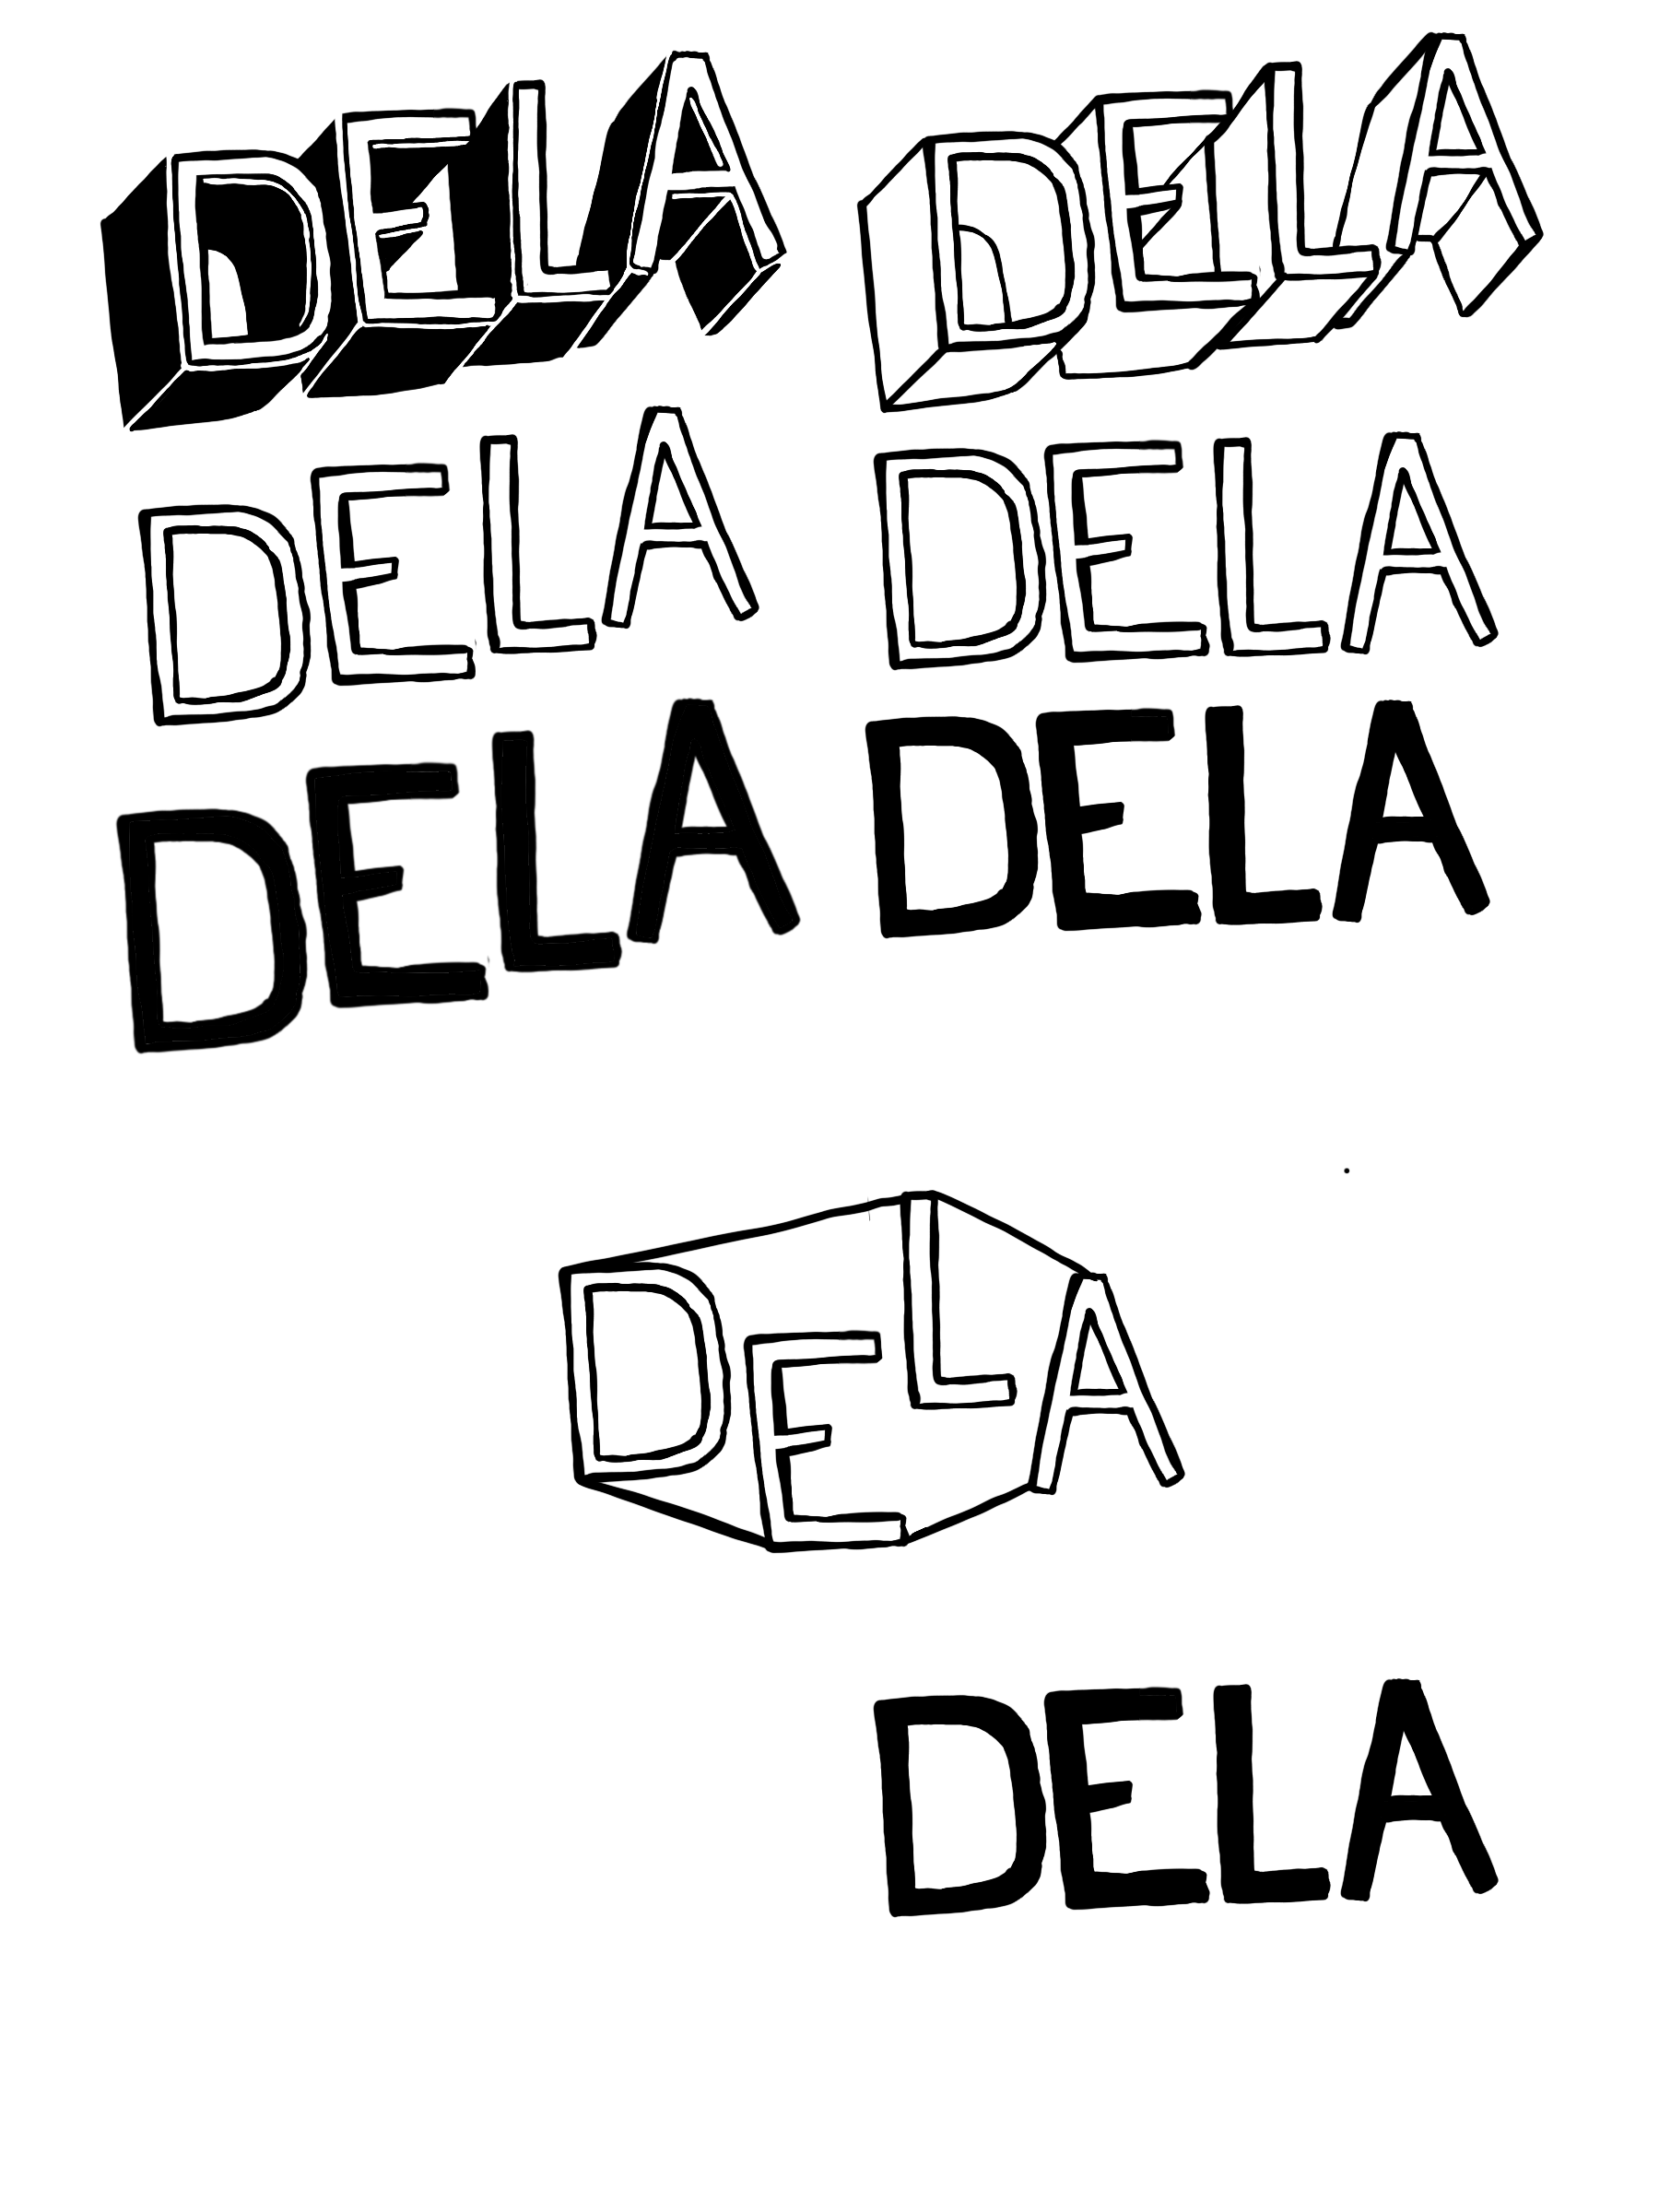 DELA DELA
DELA DELA
DELA DELA
DELA
DELA